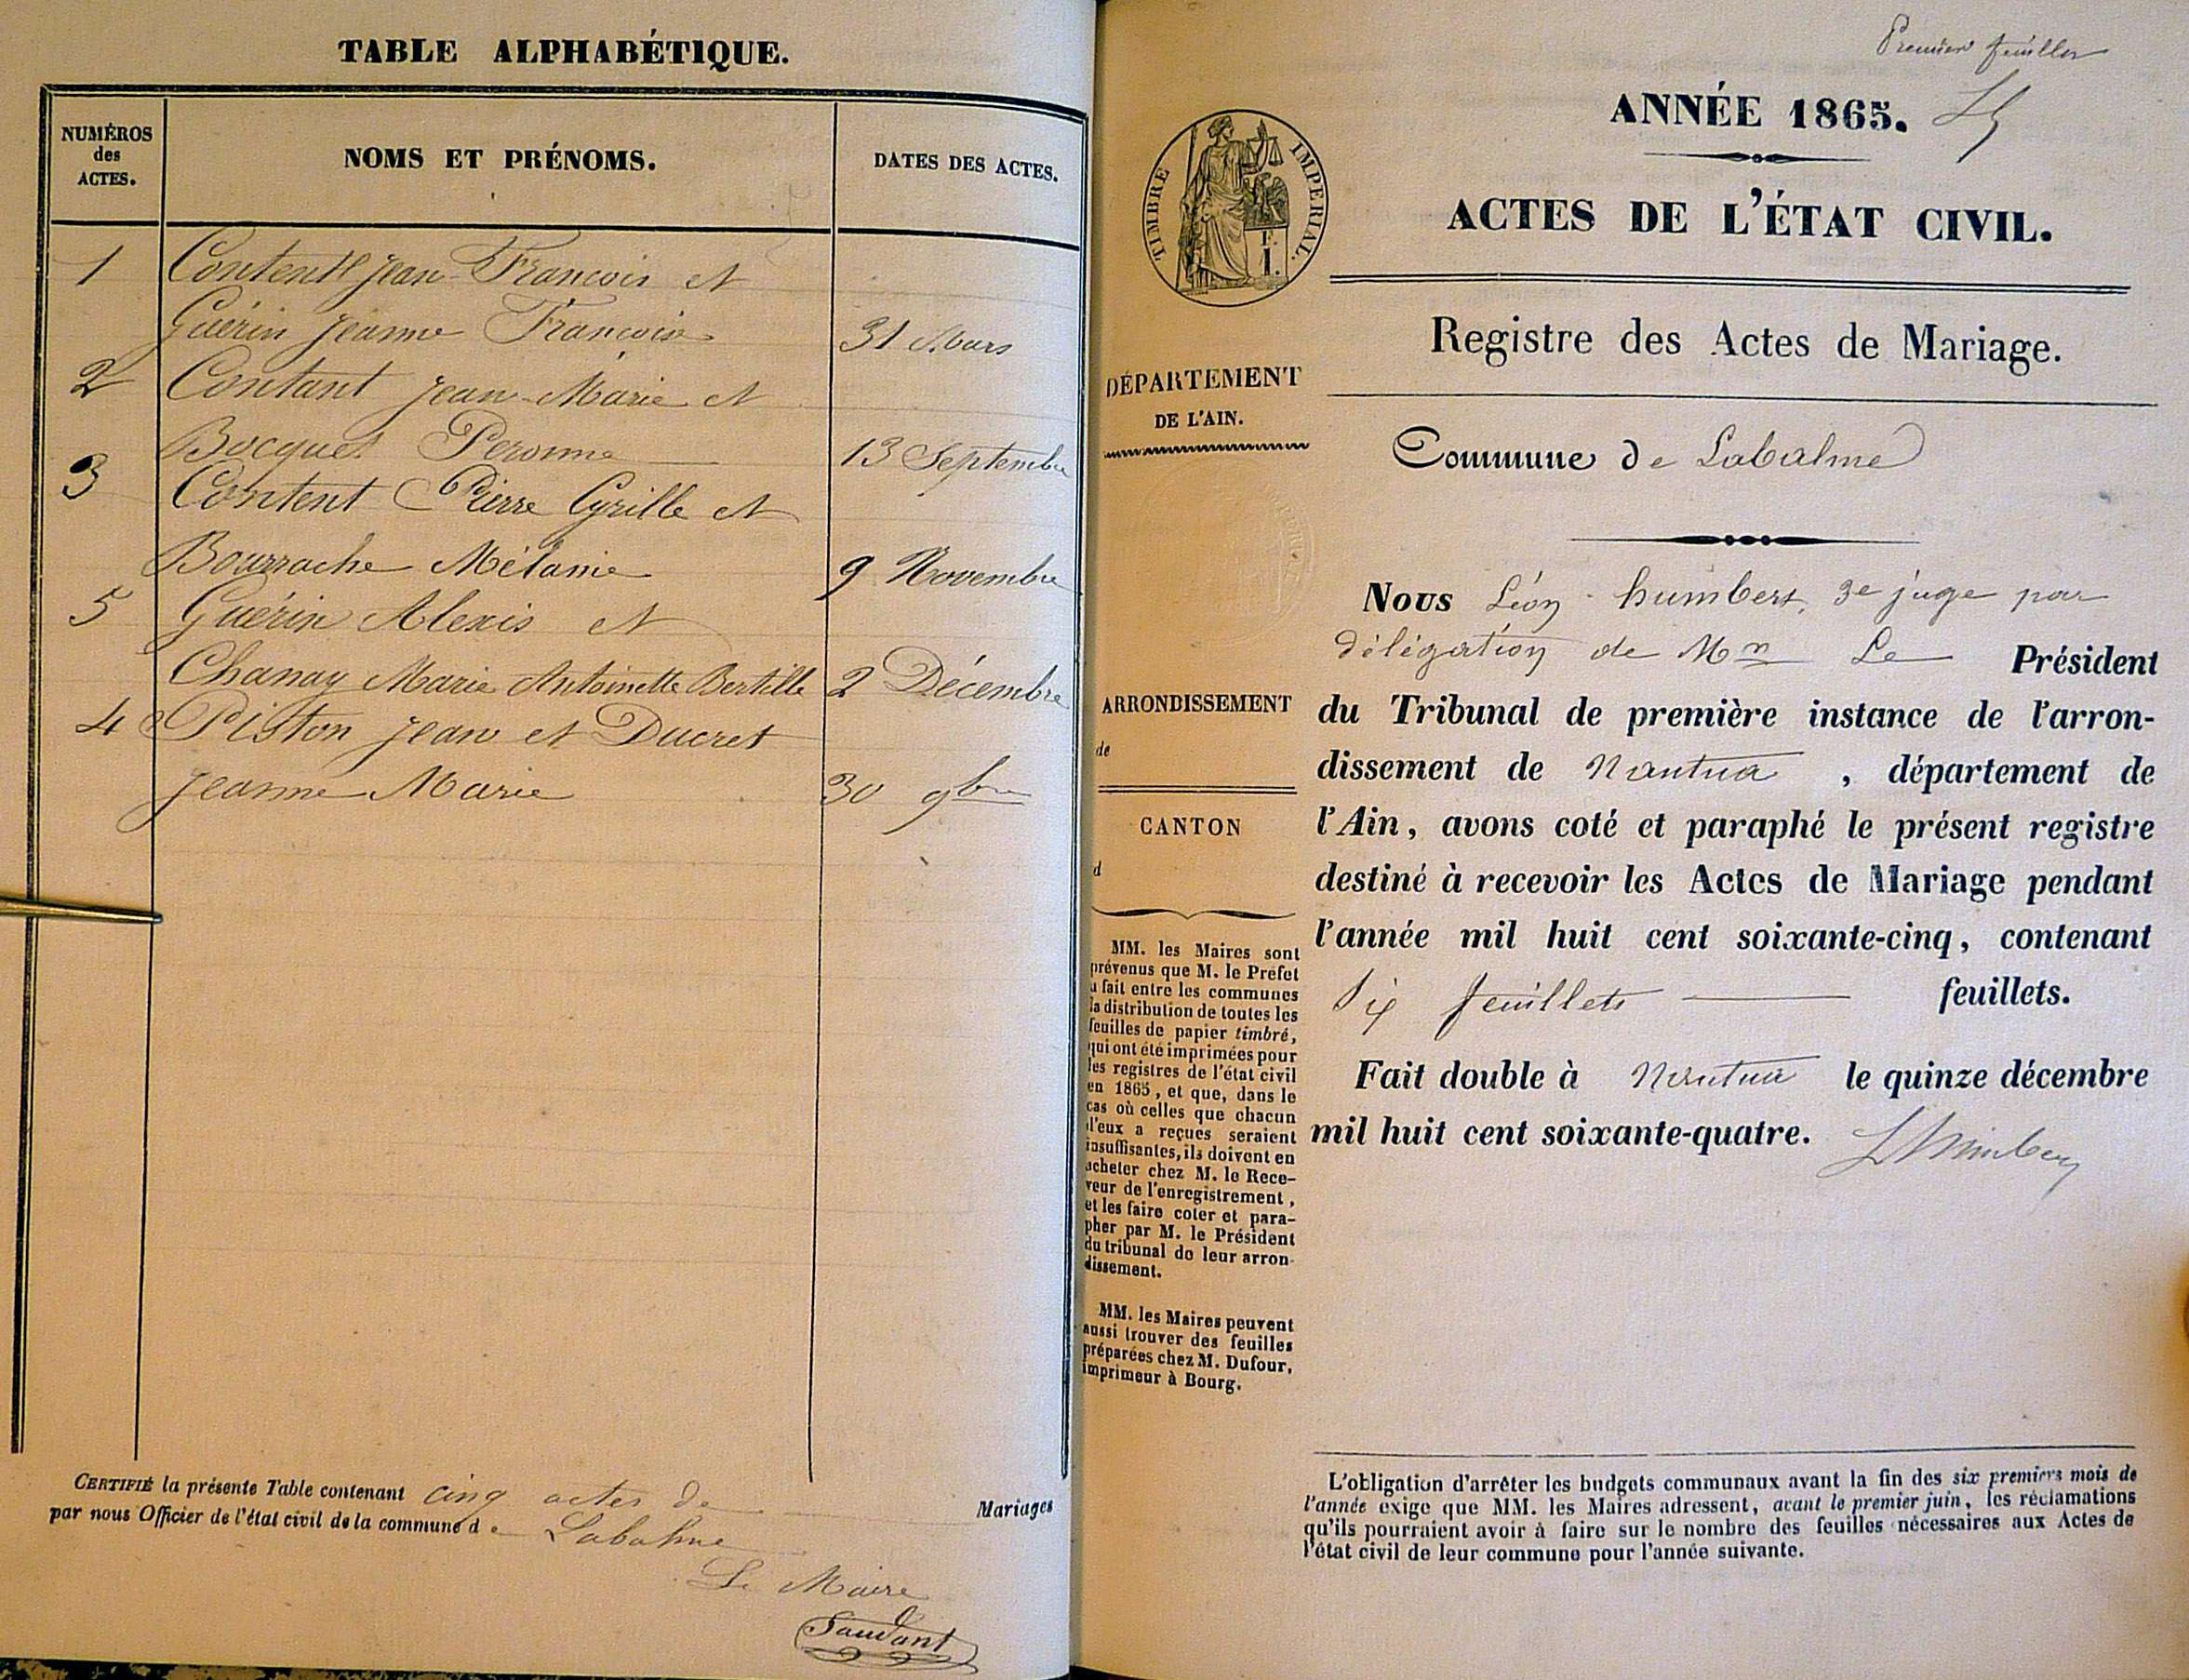 TABLE ALPHABÉTIQUE.
NUMÉROS
des
ACTES.
NOMS ET PRÉNOMS.
DATES DES ACTES.
1 Content Jean-François et
Guérin Jeanne Françoise 31 Mars
2 Contant Jean-Marie et
Bocquet Peronne 13 Septembre
3 Content Pierre Cyrille et
Bourrache Mélanie 9 Novembre
5 Guérin Alexis et
Chanay Marie Antoinette Bertille 2 Décembre
4 Piston Jean et Ducret
Jeanne Marie 30 9bre
CERTIFIÉ la présente Table contenant cinq actes de Mariages
par nous Officier de l'état civil de la commune de Labalme
Le Maire
Premier feuillet
ANNÉE 1865.
TIMBRE IMPERIAL.
E.
I.
ACTES DE L'ÉTAT CIVIL.
Registre des Actes de Mariage.
DÉPARTEMENT
DE L'AIN.
Commune de Labalme
Nous Léon humbert, 3e juge par
délégation de Mr Le Président
du Tribunal de première instance de l'arron-
dissement de Nantua, département de
l'Ain, avons coté et paraphé le présent registre
destiné à recevoir les Actes de Mariage pendant
l'année mil huit cent soixante-cinq, contenant
Six feuillets feuillets.
Fait double à Nantua le quinze décembre
mil huit cent soixante-quatre.
LHumbert
ARRONDISSEMENT
de
CANTON
d
MM. les Maires sont
prévenus que M. le Préfet
a fait entre les communes
la distribution de toutes les
feuilles de papier timbré,
qui ont été imprimées pour
les registres de l'état civil
en 1865, et que, dans le
cas où celles que chacun
d'eux a reçues seraient
insuffisantes, ils doivent en
acheter chez M. le Rece-
veur de l'enregistrement,
et les faire coter et para-
pher par M. le Président
du tribunal de leur arron-
dissement.
MM. les Maires peuvent
aussi trouver des feuilles
préparées chez M. Dufour,
imprimeur à Bourg.
L'obligation d'arrêter les budgets communaux avant la fin des six premiers mois de
l'année exige que MM. les Maires adressent, avant le premier juin, les réclamations
qu'ils pourraient avoir à faire sur le nombre des feuilles nécessaires aux Actes de
l'état civil de leur commune pour l'année suivante.